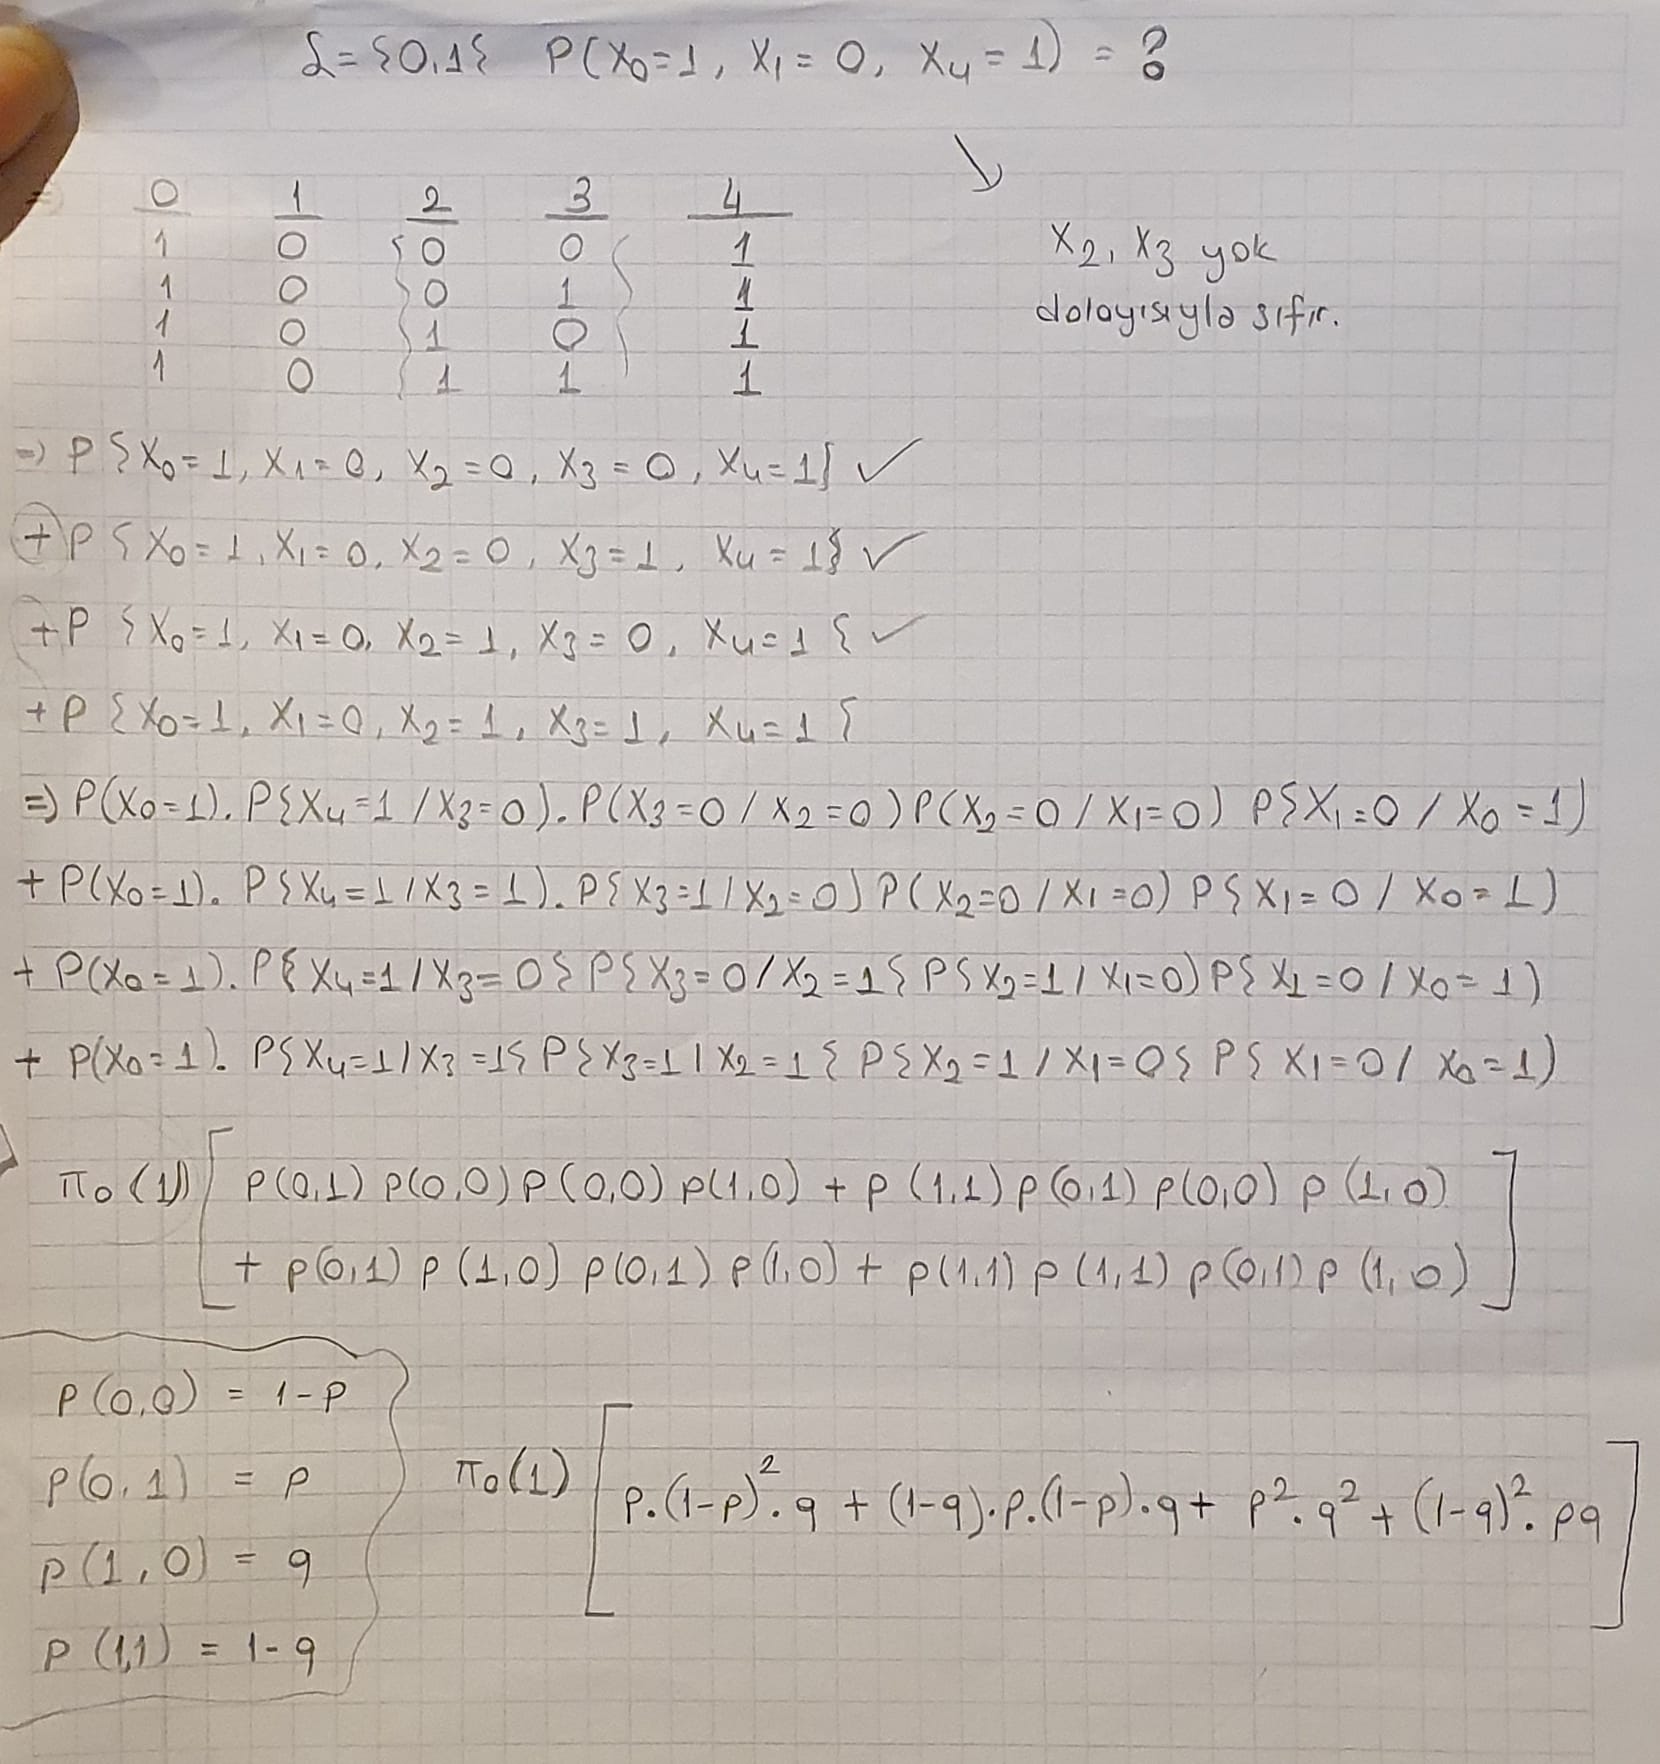 S={0,1} P(X₀=1, X₁=0, X₄=1) = ?
0 1 2 3 4
1 0 0 0 1
1 0 0 1 1
1 0 1 0 1
1 0 1 1 1
X₂, X₃ yok
dolayısıyla sıfır.
=> P{X₀=1, X₁=0, X₂=0, X₃=0, X₄=1} ✓
+P{X₀=1, X₁=0, X₂=0, X₃=1, X₄=1} ✓
+P{X₀=1, X₁=0, X₂=1, X₃=0, X₄=1} ✓
+P{X₀=1, X₁=0, X₂=1, X₃=1, X₄=1}
=> P(X₀=1). P{X₄=1/X₃=0). P(X₃=0/X₂=0) P(X₂=0/X₁=0) P{X₁=0/X₀=1)
+ P(X₀=1). P{X₄=1/X₃=1). P{X₃=1/X₂=0) P(X₂=0/X₁=0) P{X₁=0/X₀=1)
+ P(X₀=1). P{X₄=1/X₃=0} P{X₃=0/X₂=1} P{X₂=1/X₁=0) P{X₁=0/X₀=1)
+ P(X₀=1). P{X₄=1/X₃=1} P{X₃=1/X₂=1} P{X₂=1/X₁=0} P{X₁=0/X₀=1)
π₀(1) [ p(0,1) p(0,0) p(0,0) p(1,0) + p(1,1) p(0,1) p(0,0) p(1,0)
+ p(0,1) p(1,0) p(0,1) p(1,0) + p(1,1) p(1,1) p(0,1) p(1,0) ]
p(0,0) = 1-p
p(0,1) = p
p(1,0) = q
p(1,1) = 1-q
π₀(1) [ p.(1-p)².q + (1-q).p.(1-p).q + p².q² + (1-q)².pq ]